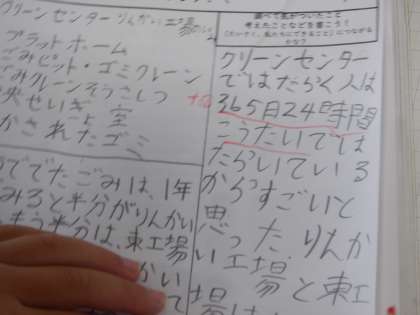 調べて気がついたこと
考えたことなどを書こう！
クリーンセンターりんかい工場
プラットホーム
ごみピット・ゴミクレーン
ごみクレーンそうさしつ
央せいぎょ室
かされたゴミ
ででたごみは、1年
みると半分がりんかい
もう半分は、東工場
かい
て
クリーンセンター
ではたらく人は
365日24時間
こうたいでは
たらいている
からすごいと
思った。りんか
い工場と東工
場は